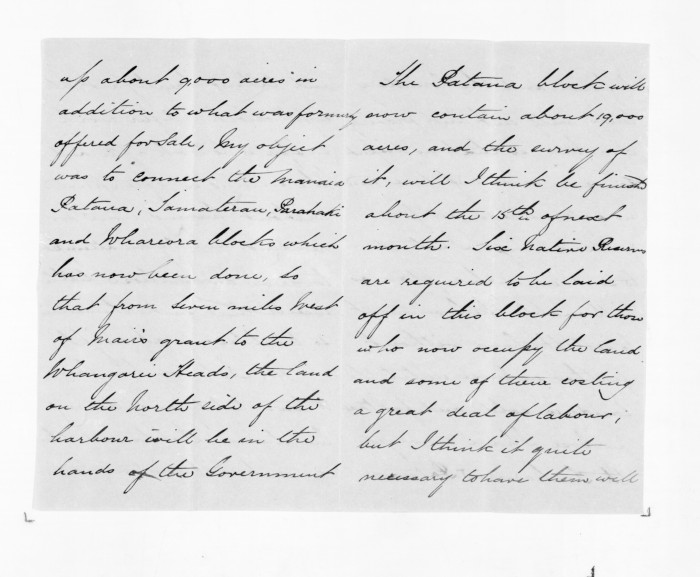 up about 9,000 acres in
addition to what was formerly
offered for Sale, My object
was to connect the Manaia
Pataua, Tamaterau, Parahaki
and Whareora blocks which
has now been done, so
that from seven miles West
of Mair's grant to the
Whangarei Heads, the land
on the North side of the
harbour will be in the
hands of the Government
The Pataua block will
now contain about 19,000
acres, and the survey of
it, will I think be finished
about the 15th of next
month. Six Native Reserves
are required to be laid
off in this block for those
who now occupy the land
and some of them costing
a great deal of labour;
but I think it quite
necessary to have them well